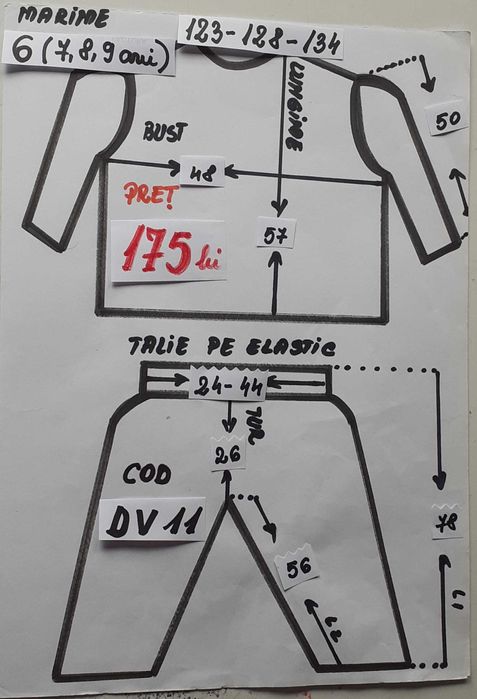 MARIME
6 (7,8,9 ani)
123-128-134
LUNGIME
50
BUST
48
PREȚ
175 lei
57
TALIE PE ELASTIC
24-44
TUR
26
COD
DV 11
78
56
L2
L1